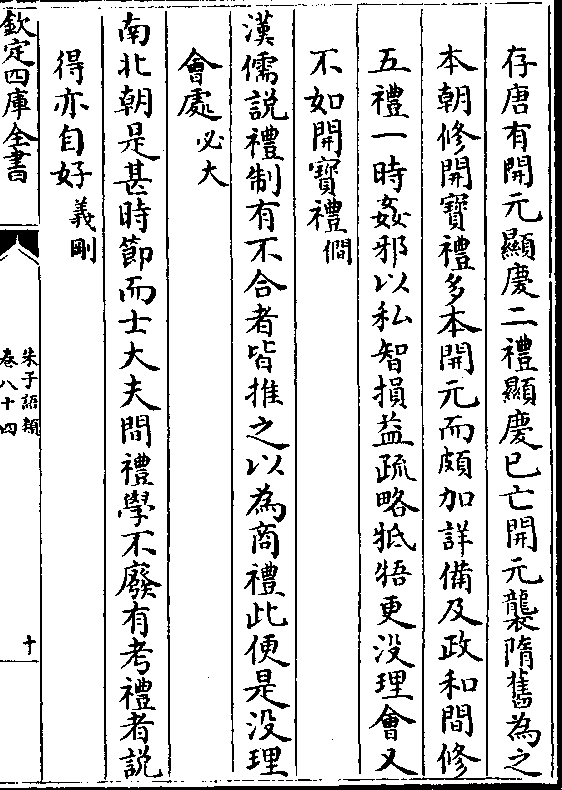 存唐有開元顯慶二禮顯慶已亡開元襲隋舊為之
本朝修開寶禮多本開元而頗加詳備及政和間修
五禮一時姦邪以私智損益疏略牴牾更没理會又
不如開寶禮僩
漢儒説禮制有不合者皆推之以為商禮此便是没理
會處必大
南北朝是甚時節而士大夫間禮學不廢有考禮者説
得亦自好義剛
欽定四庫全書
朱子語類
卷八十四
十